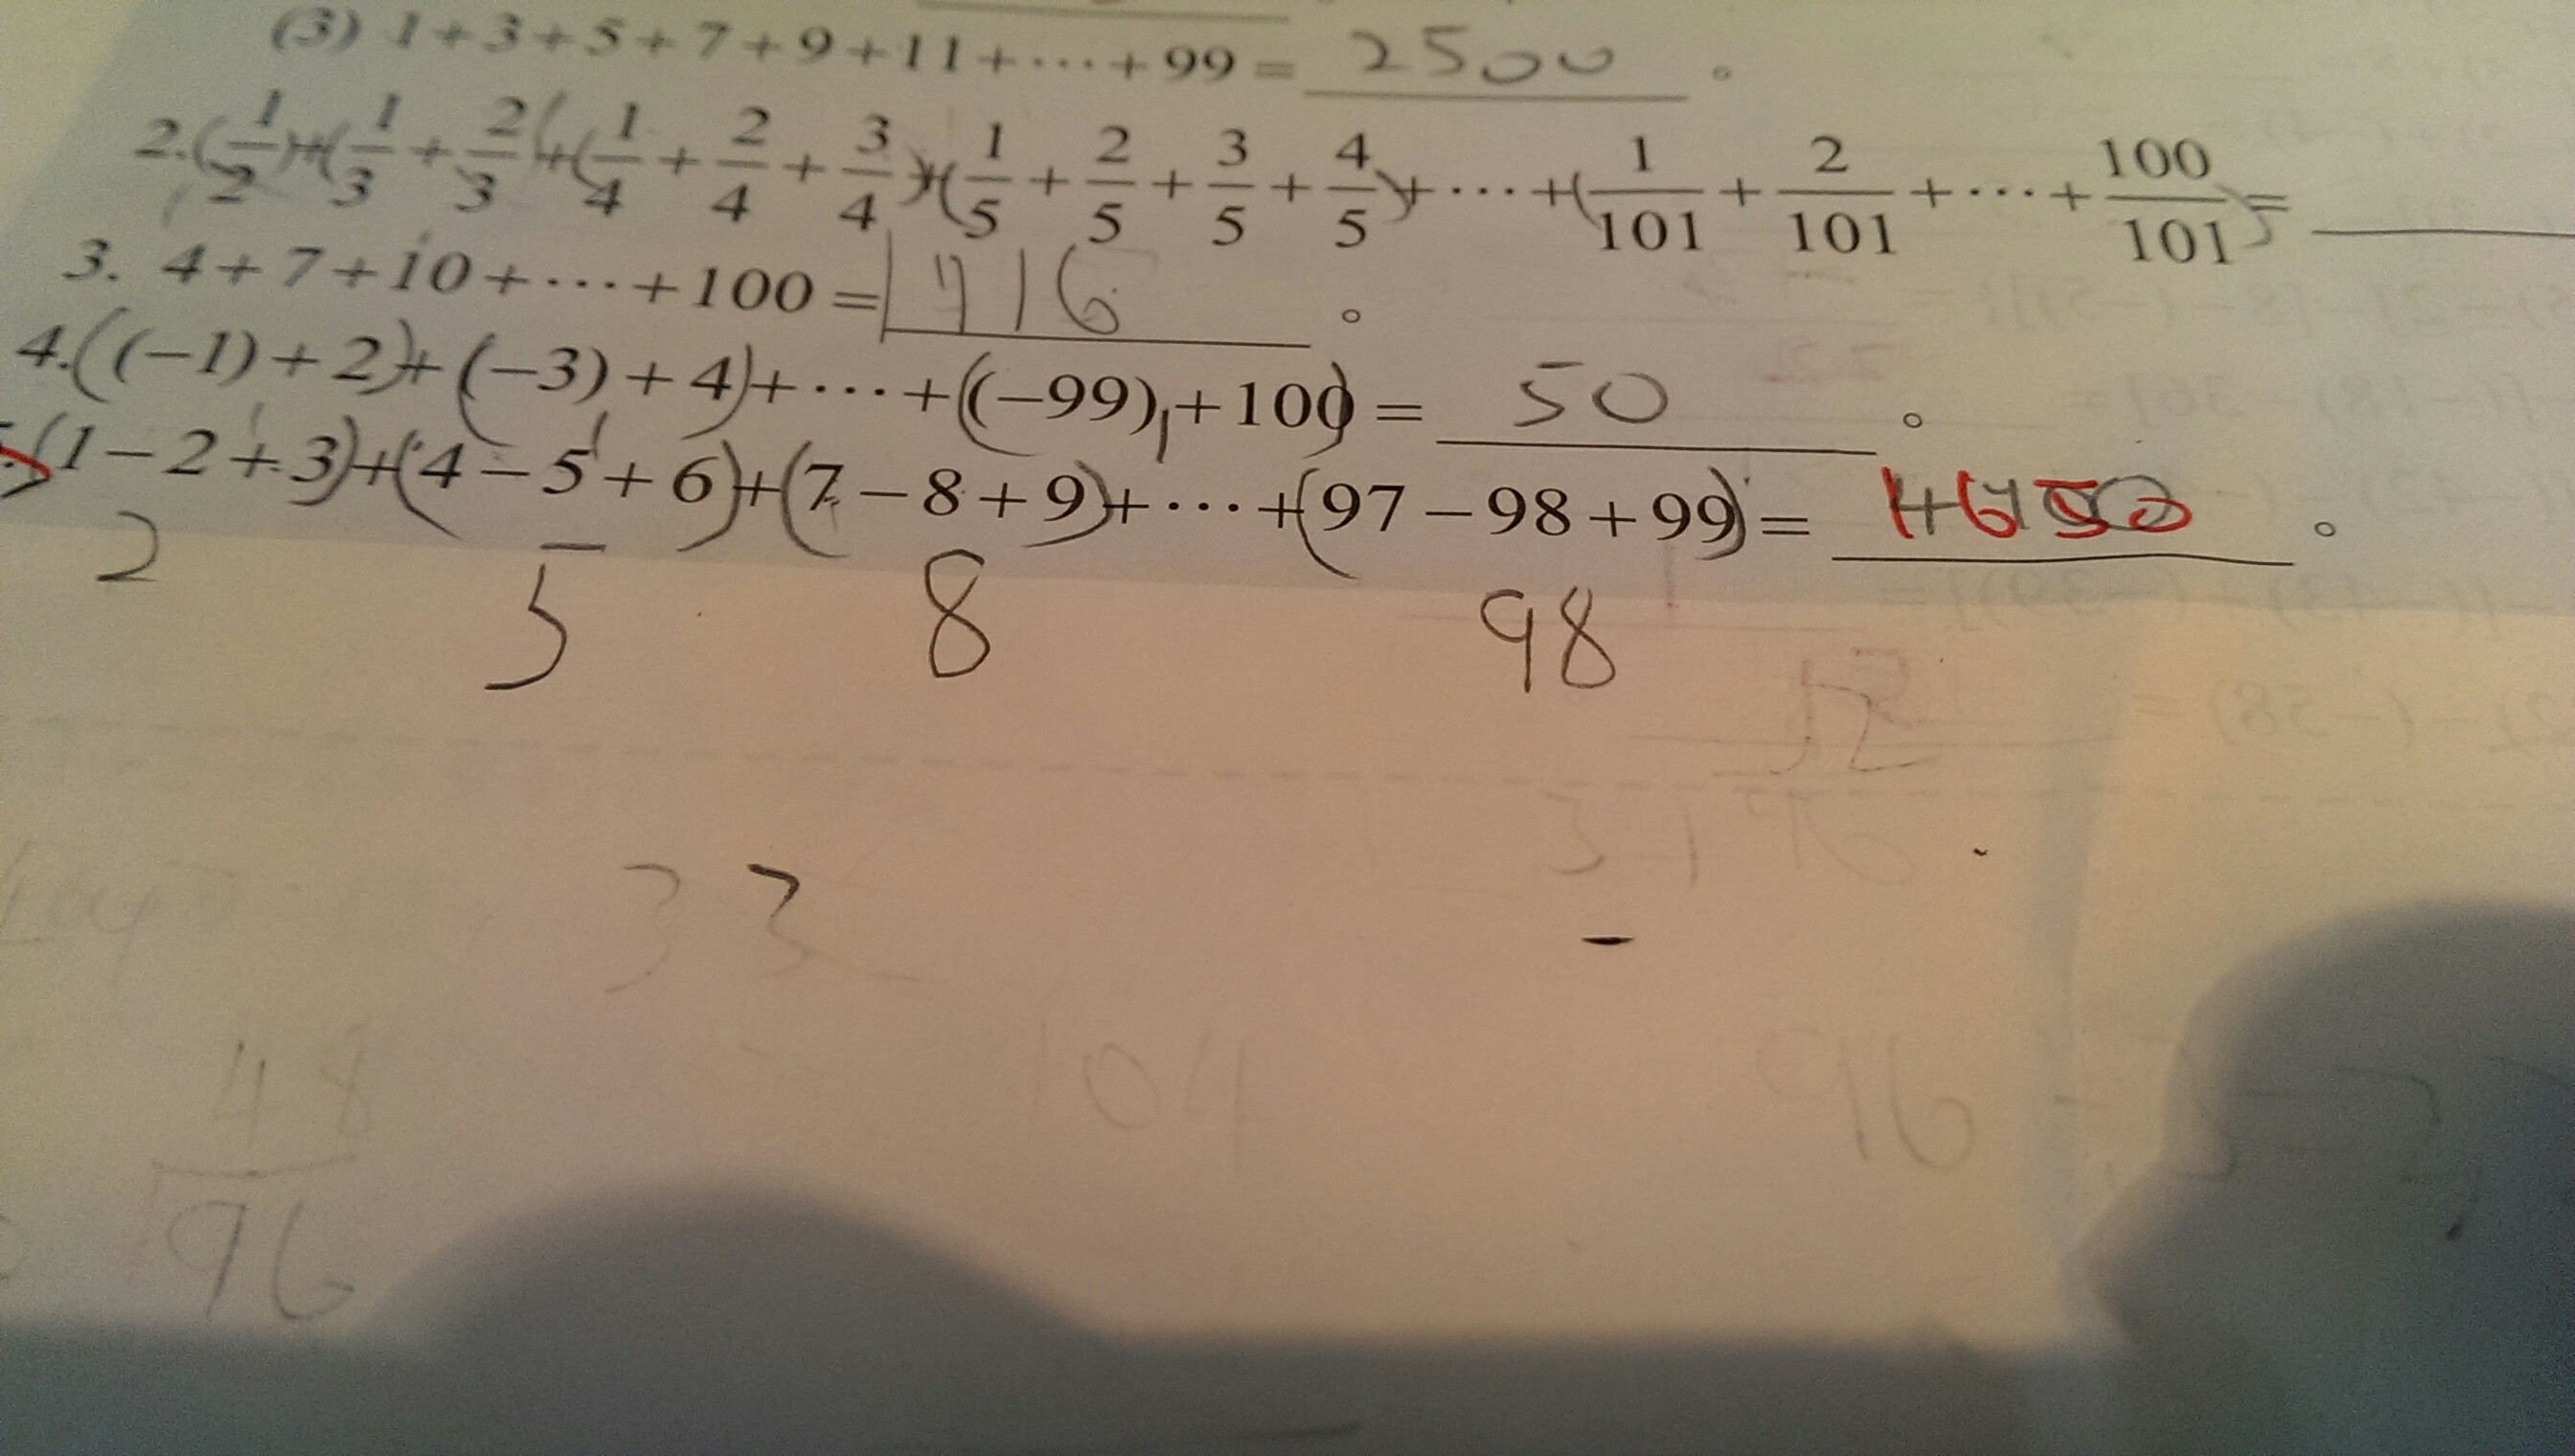 (3) 1+3+5+7+9+11+···+99= 2500 。
2.(1/2)+(1/3+2/3)+(1/4+2/4+3/4)+(1/5+2/5+3/5+4/5)+···+(1/101+2/101+···+100/101)=
3. 4+7+10+···+100= 1716 。
4.((-1)+2)+(-3)+4)+···+((-99)+100)= 50 。
(1-2+3)+(4-5+6)+(7-8+9)+···+(97-98+99)= 1650 。
2 5 8 98
33
48
96